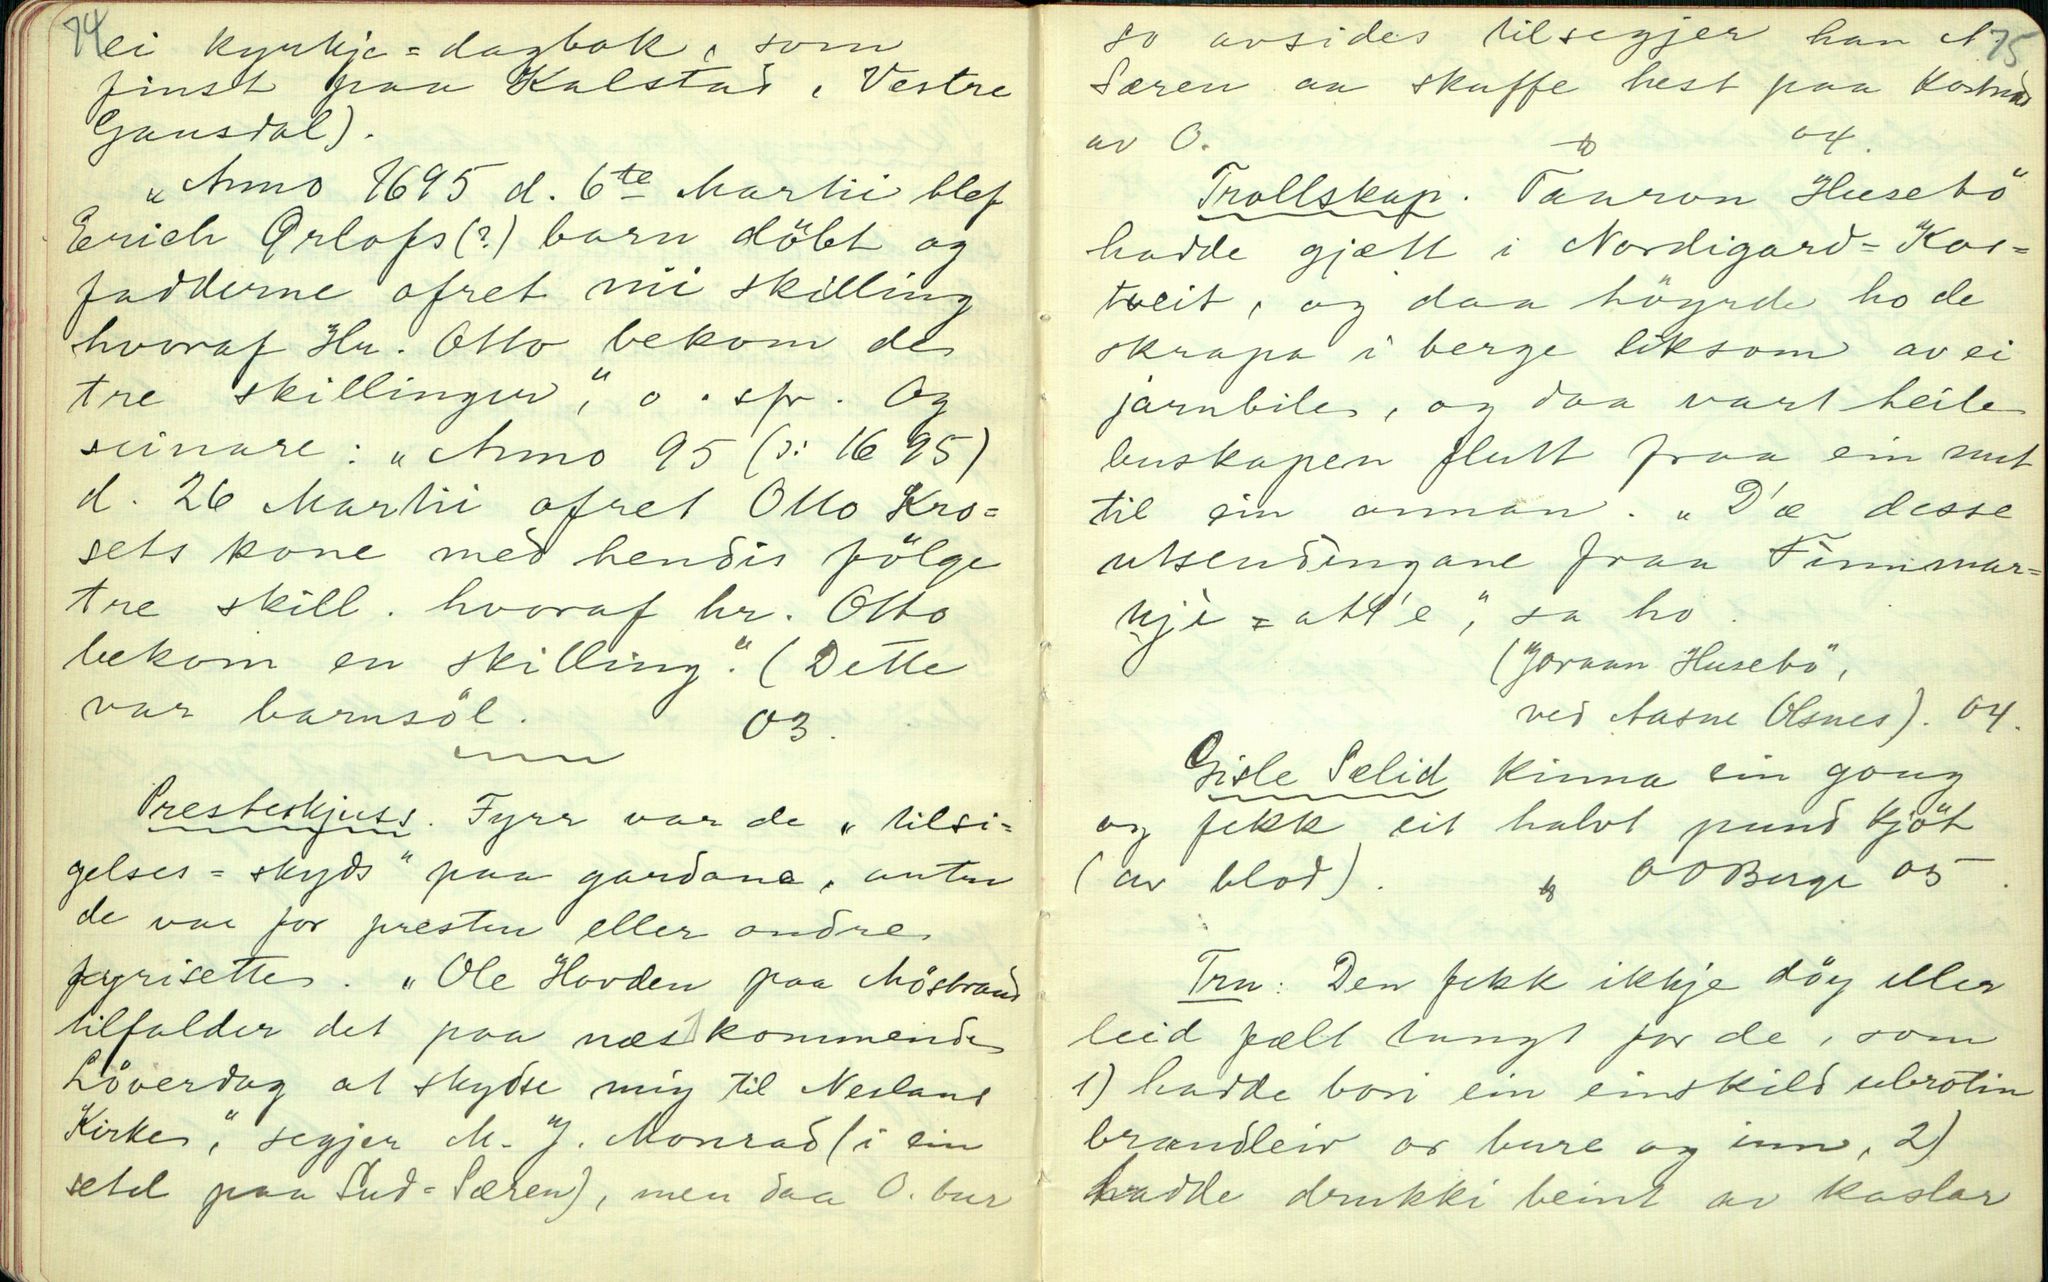 74
ei kyrkje=dagbok, som
finst paa Kalstad, Vestre
Gausdal).
„Anno 1695 d. 6te Martii blef
Erich Qrlofs(?) barn döbt og
fadderne ofret nii skilling
hvoraf Hr. Otto bekom de
tre skillinger", o. spr. Og
seinare: „Anno 95 (ɔ: 1695)
d. 26 Martii ofret Otto Kro=
sets kone med hendis fölge
tre skill. hvoraf hr. Otto
bekom en skilling". (Dette
var barnsöl. 03.
Presteskjuss. Fyrr var de „tilsi=
gelses=skyds" paa gardane, anten
de var for presten eller andre
fyrisette. „Ole Hovden paa Mösbrand
tilfalder det paa næstkommende
Löverdag at skydse mig til Nesland
Kirke", segjer M. J. Monrad (i ein
setel paa Sud=Særen), men daa O. bur
75
so avsides tilsegjer han N.
Særen aa skaffe hest paa Kostnad
av O. 04.
Trollskap. Tauron Husebö
hadde gjætt i Nordigard=Kos=
tveit, og daa höyrde ho de
skrapa i berge liksom av ei
jarnbile, og daa vart heile
buskapen flutt fraa ein nut
til ein annan. „D'æ desse
utsendingane fraa Finnmar=
kji=att'e", sa ho.
(Joraan Husebö,
ved Aasne Olsnes). 04.
Gisle Sælid kinna ein gong
og fekk eit halvt pund kjöt
(av blod). OOBerge 05.
Tru: Den fekk ikkje döy eller
leid fælt tungt for de, som
1) hadde bori ein einskild ubrotin
brandleiv or bure og inn, 2)
hadde drukki beint av kaslar